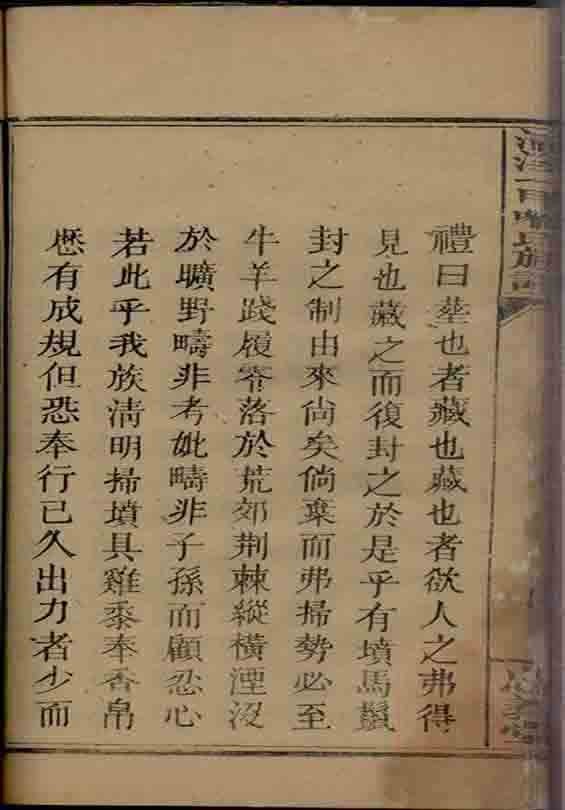 禮曰塟也者藏也藏也者欲人之弗得
見也藏之而復封之於是乎有墳馬鬛
封之制由來尙矣倘棄而弗掃勢必至
牛羊踐履零落於荒郊荆棘縱橫湮沒
於曠野疇非考妣疇非子孫而顧忍心
若此乎我族淸明掃墳具雞黍奉香帛
歷有成規但恐奉行已久出力者少而